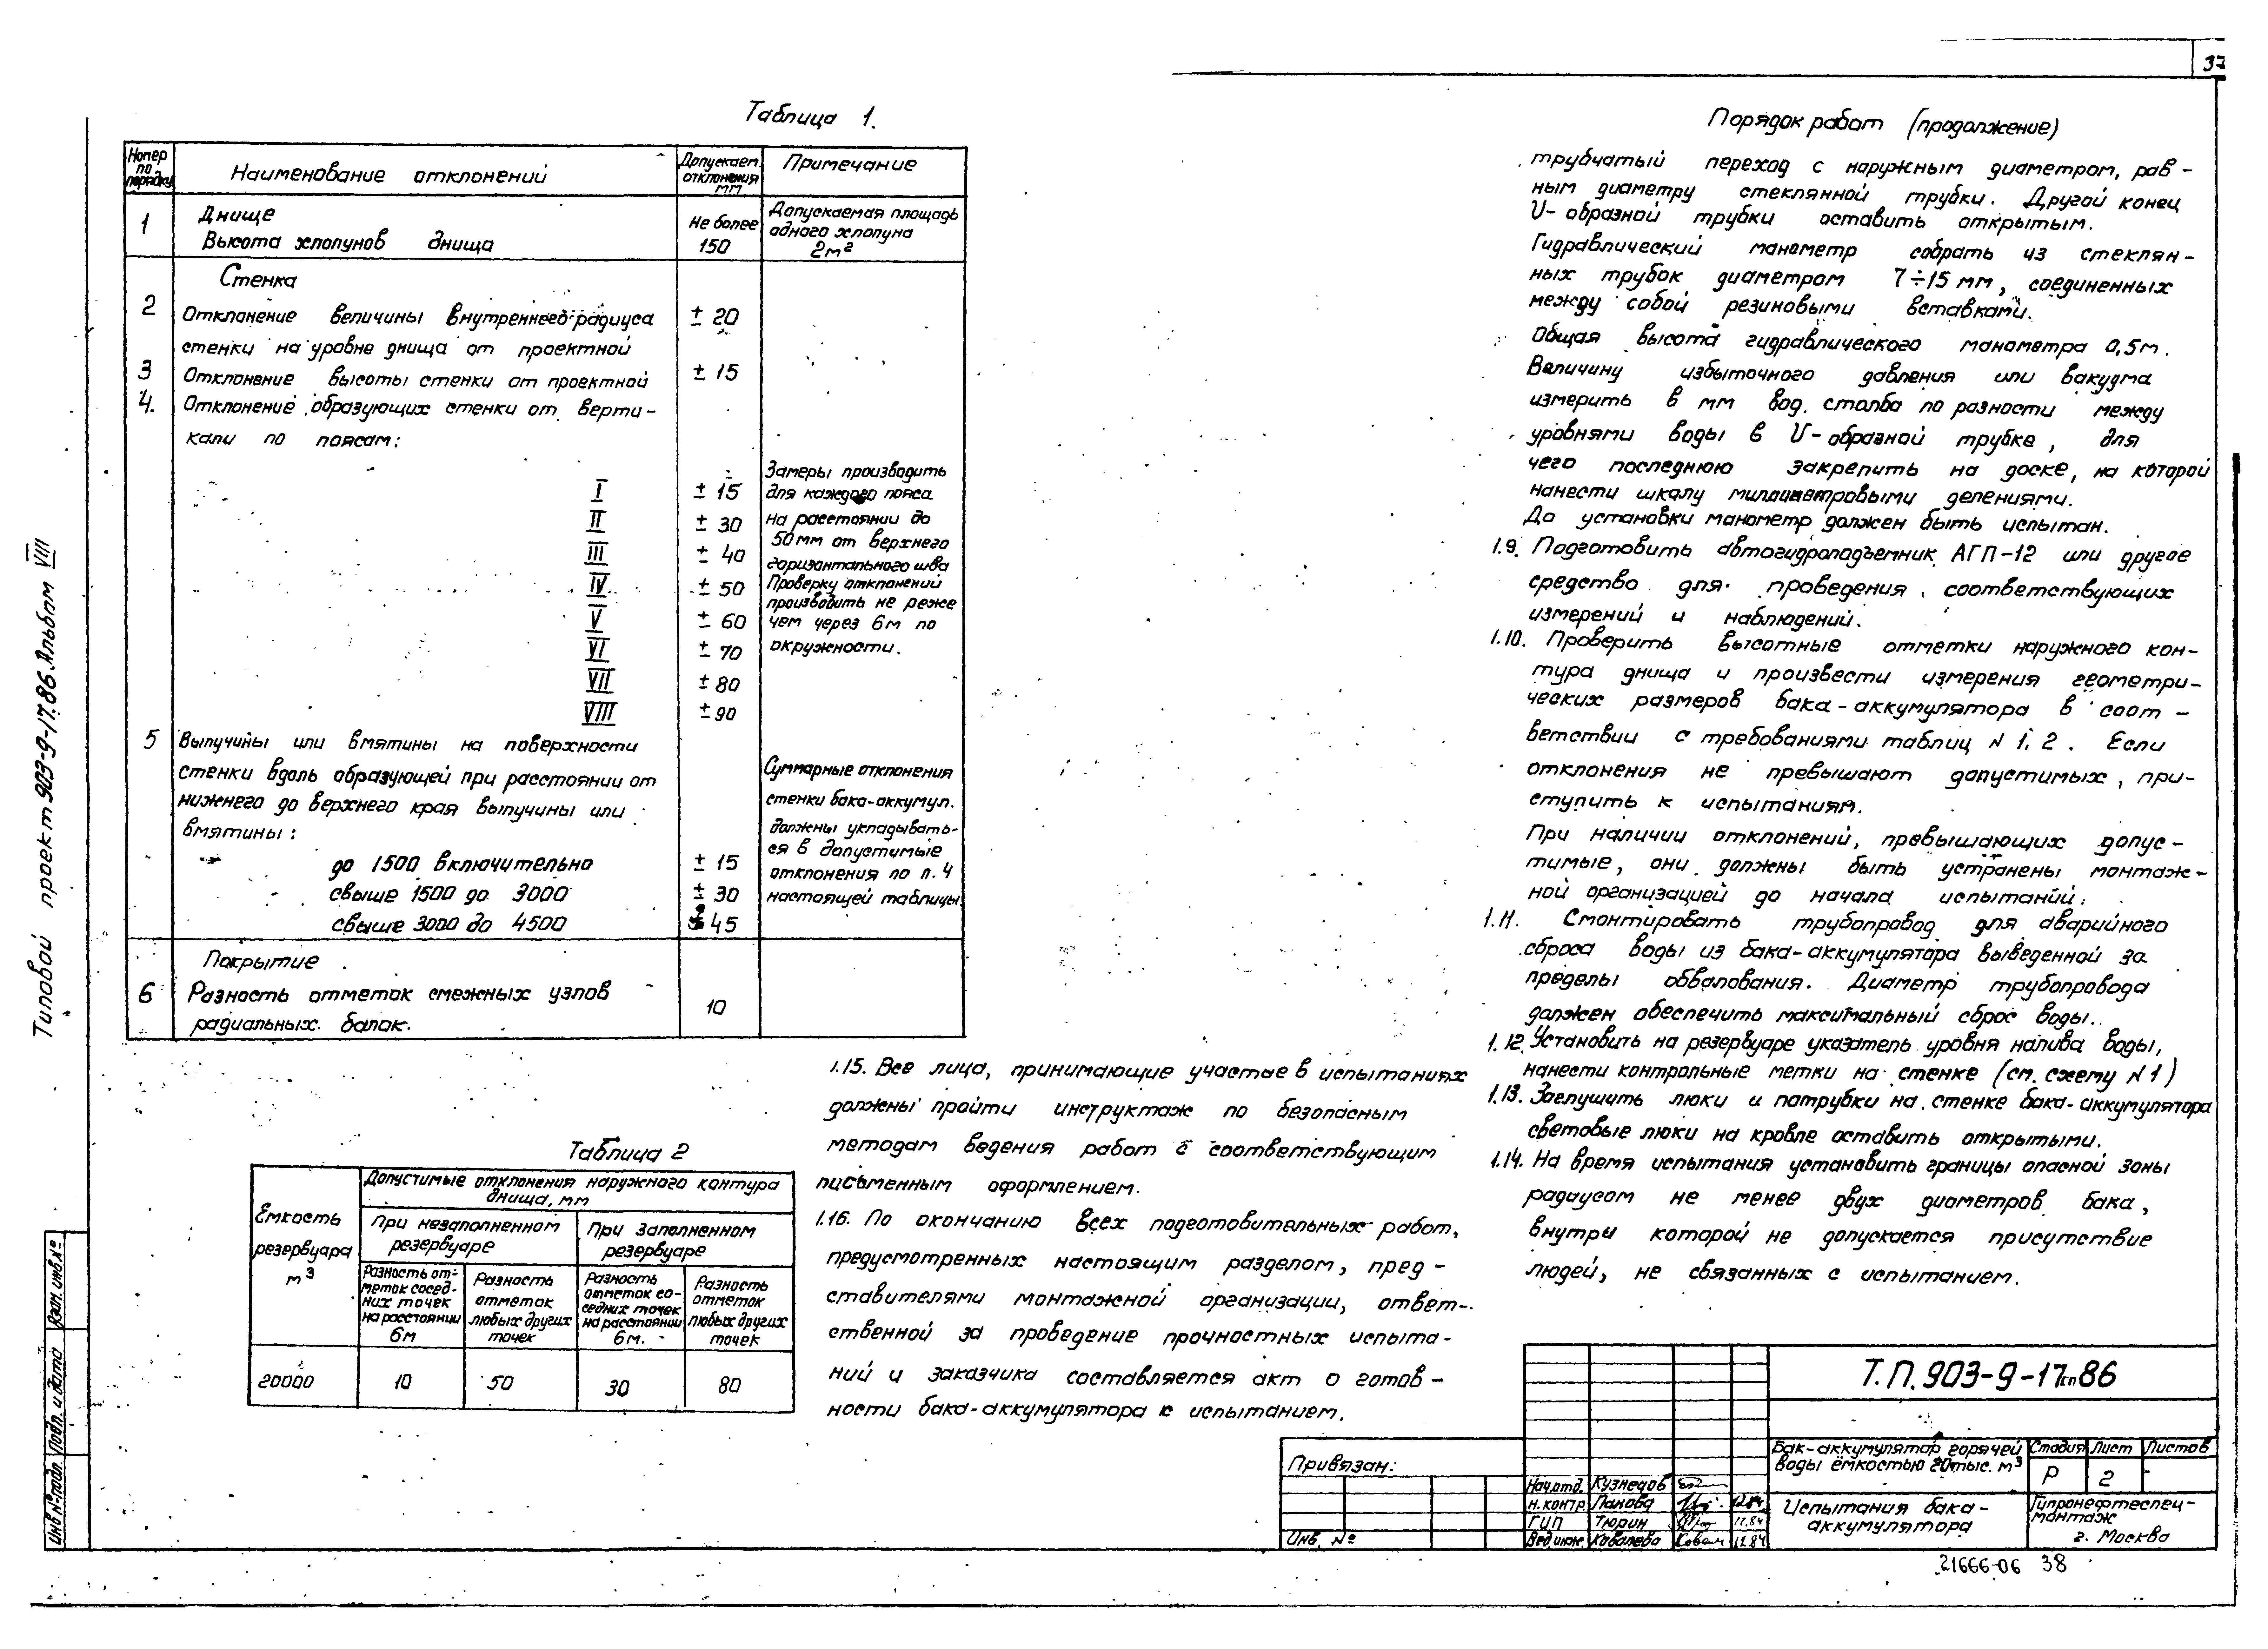 37
Таблица 1.
Номер по порядку
Наименование отклонений
Допускаем. отклонения мм
Примечание
1
Днище
Высота хлопунов днища
Не более 150
Допускаемая площадь
одного хлопуна
2м²
Стенка
2
Отклонение величины внутреннего радиуса
± 20
стенки на уровне днища от проектной
3
Отклонение высоты стенки от проектной
± 15
4.
Отклонение образующих стенки от верти-
кали по поясам:
I ± 15
II ± 30
III ± 40
IV ± 50
V ± 60
VI ± 70
VII ± 80
VIII ± 90
Замеры производить
для каждого пояса
На расстоянии до
50мм от верхнего
горизонтального шва
Проверку отклонений
производить не реже
чем через 6м по
окружности.
5
Выпучины или вмятины на поверхности
стенки вдоль образующей при расстоянии от
нижнего до верхнего края выпучины или
вмятины:
до 1500 включительно ± 15
свыше 1500 до 3000 ± 30
свыше 3000 до 4500 ± 45
Суммарные отклонения
стенки бака-аккумул.
должны укладывать-
ся в допустимые
отклонения по п. 4
настоящей таблицы
Покрытие
6
Разность отметок смежных узлов
радиальных балок.
10
Таблица 2
Емкость
резервуара
м³
Допустимые отклонения наружного контура
днища, мм
При незаполненном
резервуаре
При заполненном
резервуаре
Разность от-
меток сосед-
них точек
на расстоянии
6м
Разность
отметок
любых других
точек
Разность
отметок со-
седних точек
на расстоянии
6м.
Разность
отметок
любых других
точек
20000 10 50 30 80
1.15. Все лица, принимающие участие в испытаниях
должны пройти инструктаж по безопасным
методам ведения работ с соответствующим
письменным оформлением.
1.16. По окончанию всех подготовительных работ,
предусмотренных настоящим разделом, пред-
ставителями монтажной организации, ответ-
ственной за проведение прочностных испыта-
ний и заказчика составляется акт о готов-
ности бака-аккумулятора к испытанием.
Порядок работ (продолжение)
трубчатый переход с наружным диаметром, рав-
ным диаметру стеклянной трубки. Другой конец
U-образной трубки оставить открытым.
Гидравлический манометр собрать из стеклян-
ных трубок диаметром 7÷15 мм, соединенных
между собой резиновыми вставками.
Общая высота гидравлического манометра 0,5м.
Величину избыточного давления или вакуума
измерить в мм вод. столба по разности между
уровнями воды в U-образной трубке, для
чего последнюю закрепить на доске, на которой
нанести шкалу миллиметровыми делениями.
До установки манометр должен быть испытан.
1.9. Подготовить автогидроподъемник АГП-12 или другое
средство для проведения соответствующих
измерений и наблюдений.
1.10. Проверить высотные отметки наружного кон-
тура днища и произвести измерения геометри-
ческих размеров бака-аккумулятора в соот-
ветствии с требованиями таблиц N 1, 2. Если
отклонения не превышают допустимых, при-
ступить к испытаниям.
При наличии отклонений, превышающих допус-
тимые, они должны быть устранены монтаж-
ной организацией до начала испытаний.
1.11. Смонтировать трубопровод для аварийного
сброса воды из бака-аккумулятора выведенной за
пределы обвалования. Диаметр трубопровода
должен обеспечить максимальный сброс воды.
1.12. Установить на резервуаре указатель уровня налива воды,
нанести контрольные метки на стенке (см. схему N1)
1.13. Заглушить люки и патрубки на стенке бака-аккумулятора
световые люки на кровле оставить открытыми.
1.14. На время испытания установить границы опасной зоны
радиусом не менее двух диаметров бака,
внутри которой не допускается присутствие
людей, не связанных с испытанием.
Т.П. 903-9-17сп86
Бак-аккумулятор горячей
воды ёмкостью 20тыс. м³
Стадия Лист Листов
Р 2
Испытания бака-
аккумулятора
Гипронефтеспец-
монтаж
г. Москва
Привязан:
Инв. №
Нач.отд. Кузнецов
Н.контр. Панова 12.84
ГИП Тюрин 12.84
Вед.инж. Ковалева 12.84
21666-06 38
Типовой проект 903-9-17.86. Альбом VIII
Взам. инв. №
Подп. и дата
Инв № подл.